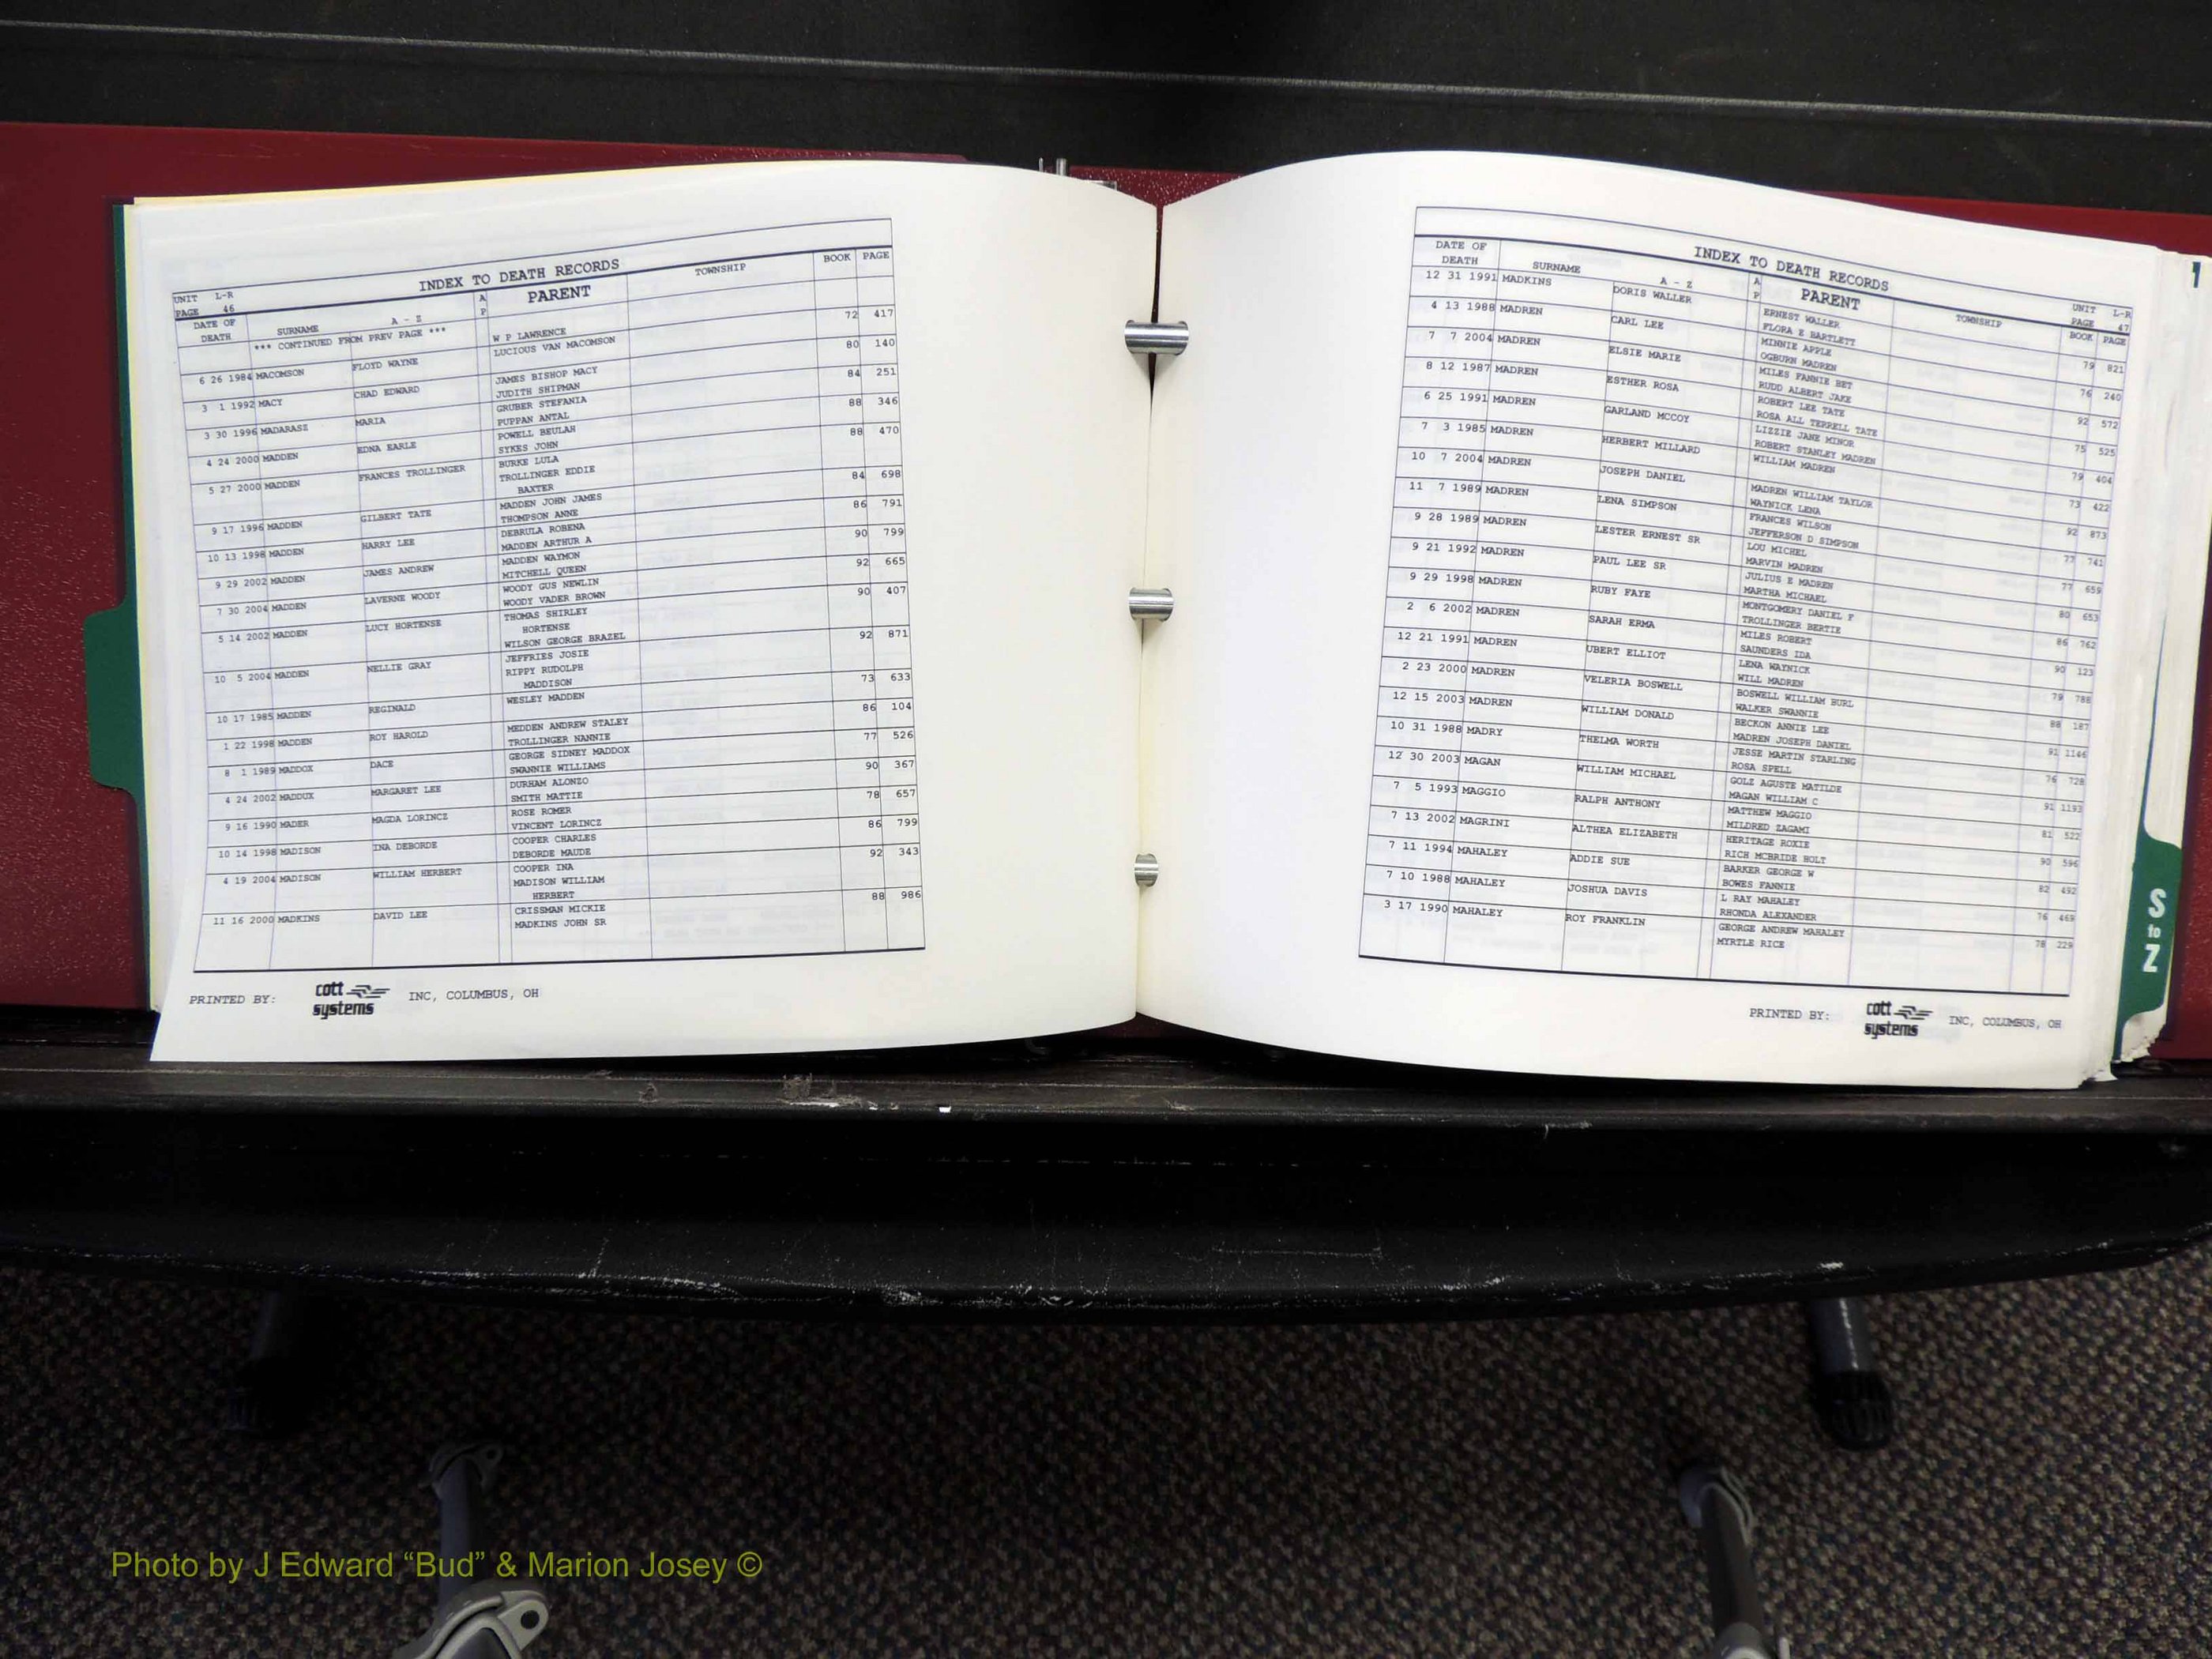 INDEX TO DEATH RECORDS
UNIT L-R
PAGE 46
DATE OF DEATH SURNAME A - Z A P PARENT TOWNSHIP BOOK PAGE
*** CONTINUED FROM PREV PAGE *** W P LAWRENCE
6 26 1984 MACOMSON FLOYD WAYNE LUCIOUS VAN MACOMSON 72 417
3 1 1992 MACY CHAD EDWARD JAMES BISHOP MACY 80 140
JUDITH SHIPMAN
3 30 1996 MADARASZ MARIA GRUBER STEFANIA 84 251
PUPPAN ANTAL
4 24 2000 MADDEN EDNA EARLE POWELL BEULAH 88 346
SYKES JOHN
5 27 2000 MADDEN FRANCES TROLLINGER BURKE LULA 88 470
TROLLINGER EDDIE
BAXTER
9 17 1996 MADDEN GILBERT TATE MADDEN JOHN JAMES 84 698
THOMPSON ANNE
10 13 1998 MADDEN HARRY LEE DEBRULA ROBENA 86 791
MADDEN ARTHUR A
9 29 2002 MADDEN JAMES ANDREW MADDEN WAYMON 90 799
MITCHELL QUEEN
7 30 2004 MADDEN LAVERNE WOODY WOODY GUS NEWLIN 92 665
WOODY VADER BROWN
5 14 2002 MADDEN LUCY HORTENSE THOMAS SHIRLEY 90 407
HORTENSE
WILSON GEORGE BRAZEL
10 5 2004 MADDEN NELLIE GRAY JEFFRIES JOSIE 92 871
RIPPY RUDOLPH
MADDISON
10 17 1985 MADDEN REGINALD WESLEY MADDEN 73 633
1 22 1998 MADDEN ROY HAROLD MEDDEN ANDREW STALEY 86 104
TROLLINGER NANNIE
8 1 1989 MADDOX DACE GEORGE SIDNEY MADDOX 77 526
SWANNIE WILLIAMS
4 24 2002 MADDUX MARGARET LEE DURHAM ALONZO 90 367
SMITH MATTIE
9 16 1990 MADER MAGDA LORINCZ ROSE ROMER 78 657
VINCENT LORINCZ
10 14 1998 MADISON INA DEBORDE COOPER CHARLES 86 799
DEBORDE MAUDE
4 19 2004 MADISON WILLIAM HERBERT COOPER INA 92 343
MADISON WILLIAM
HERBERT
11 16 2000 MADKINS DAVID LEE CRISSMAN MICKIE 88 986
MADKINS JOHN SR
PRINTED BY: cott systems INC, COLUMBUS, OH
INDEX TO DEATH RECORDS
UNIT L-R
PAGE 47
DATE OF DEATH SURNAME A - Z A P PARENT TOWNSHIP BOOK PAGE
12 31 1991 MADKINS DORIS WALLER ERNEST WALLER 79 821
FLORA E BARTLETT
4 13 1988 MADREN CARL LEE MINNIE APPLE 76 240
OGBURN MADREN
7 7 2004 MADREN ELSIE MARIE MILES FANNIE BET 92 572
RUDD ALBERT JAKE
8 12 1987 MADREN ESTHER ROSA ROBERT LEE TATE 75 525
ROSA ALL TERRELL TATE
6 25 1991 MADREN GARLAND MCCOY LIZZIE JANE MINOR 79 404
ROBERT STANLEY MADREN
7 3 1985 MADREN HERBERT MILLARD WILLIAM MADREN 73 422
10 7 2004 MADREN JOSEPH DANIEL MADREN WILLIAM TAYLOR 92 873
WAYNICK LENA
11 7 1989 MADREN LENA SIMPSON FRANCES WILSON 77 741
JEFFERSON D SIMPSON
9 28 1989 MADREN LESTER ERNEST SR LOU MICHEL 77 659
MARVIN MADREN
9 21 1992 MADREN PAUL LEE SR JULIUS E MADREN 80 653
MARTHA MICHAEL
9 29 1998 MADREN RUBY FAYE MONTGOMERY DANIEL F 86 762
TROLLINGER BERTIE
2 6 2002 MADREN SARAH ERMA MILES ROBERT 90 123
SAUNDERS IDA
12 21 1991 MADREN UBERT ELLIOT LENA WAYNICK 79 788
WILL MADREN
2 23 2000 MADREN VELERIA BOSWELL BOSWELL WILLIAM BURL 88 187
WALKER SWANNIE
12 15 2003 MADREN WILLIAM DONALD BECKON ANNIE LEE 91 1146
MADREN JOSEPH DANIEL
10 31 1988 MADRY THELMA WORTH JESSE MARTIN STARLING 76 728
ROSA SPELL
12 30 2003 MAGAN WILLIAM MICHAEL GOLZ AGUSTE MATILDE 91 1193
MAGAN WILLIAM C
7 5 1993 MAGGIO RALPH ANTHONY MATTHEW MAGGIO 81 522
MILDRED ZAGAMI
7 13 2002 MAGRINI ALTHEA ELIZABETH HERITAGE ROXIE 90 596
RICH MCBRIDE HOLT
7 11 1994 MAHALEY ADDIE SUE BARKER GEORGE W 82 492
BOWES FANNIE
7 10 1988 MAHALEY JOSHUA DAVIS L RAY MAHALEY 76 469
RHONDA ALEXANDER
3 17 1990 MAHALEY ROY FRANKLIN GEORGE ANDREW MAHALEY 78 229
MYRTLE RICE
PRINTED BY: cott systems INC, COLUMBUS, OH
1
S
to
Z
Photo by J Edward “Bud” & Marion Josey ©